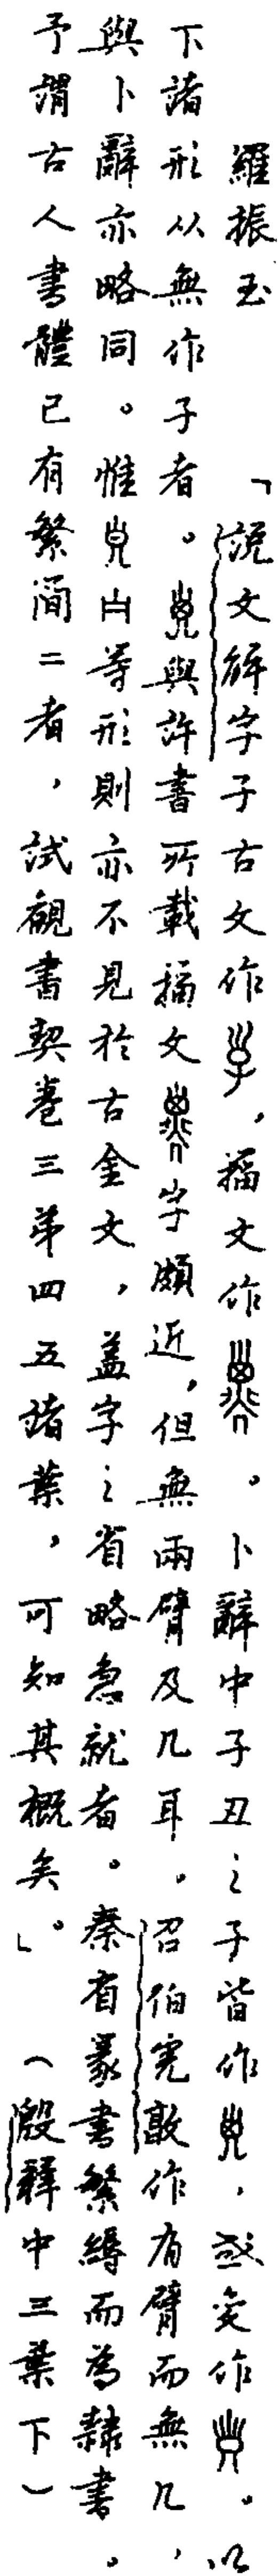 羅振玉　「說文解字子古文作，籀文作。卜辭中子丑之子皆作，或变作。以
下諸形从無作子者。與許書所載籀文字頗近，但無兩臂及几耳。召伯虎敦作有臂而無几，
與卜辭亦略同。惟等形則亦不見於古金文，蓋字之省略急就者。秦有篆書繁縟而為隸書。
予謂古人書體已有繁简二者，試觀書契卷三第四五諸葉，可知其概矣。」（殷釋中三葉下）